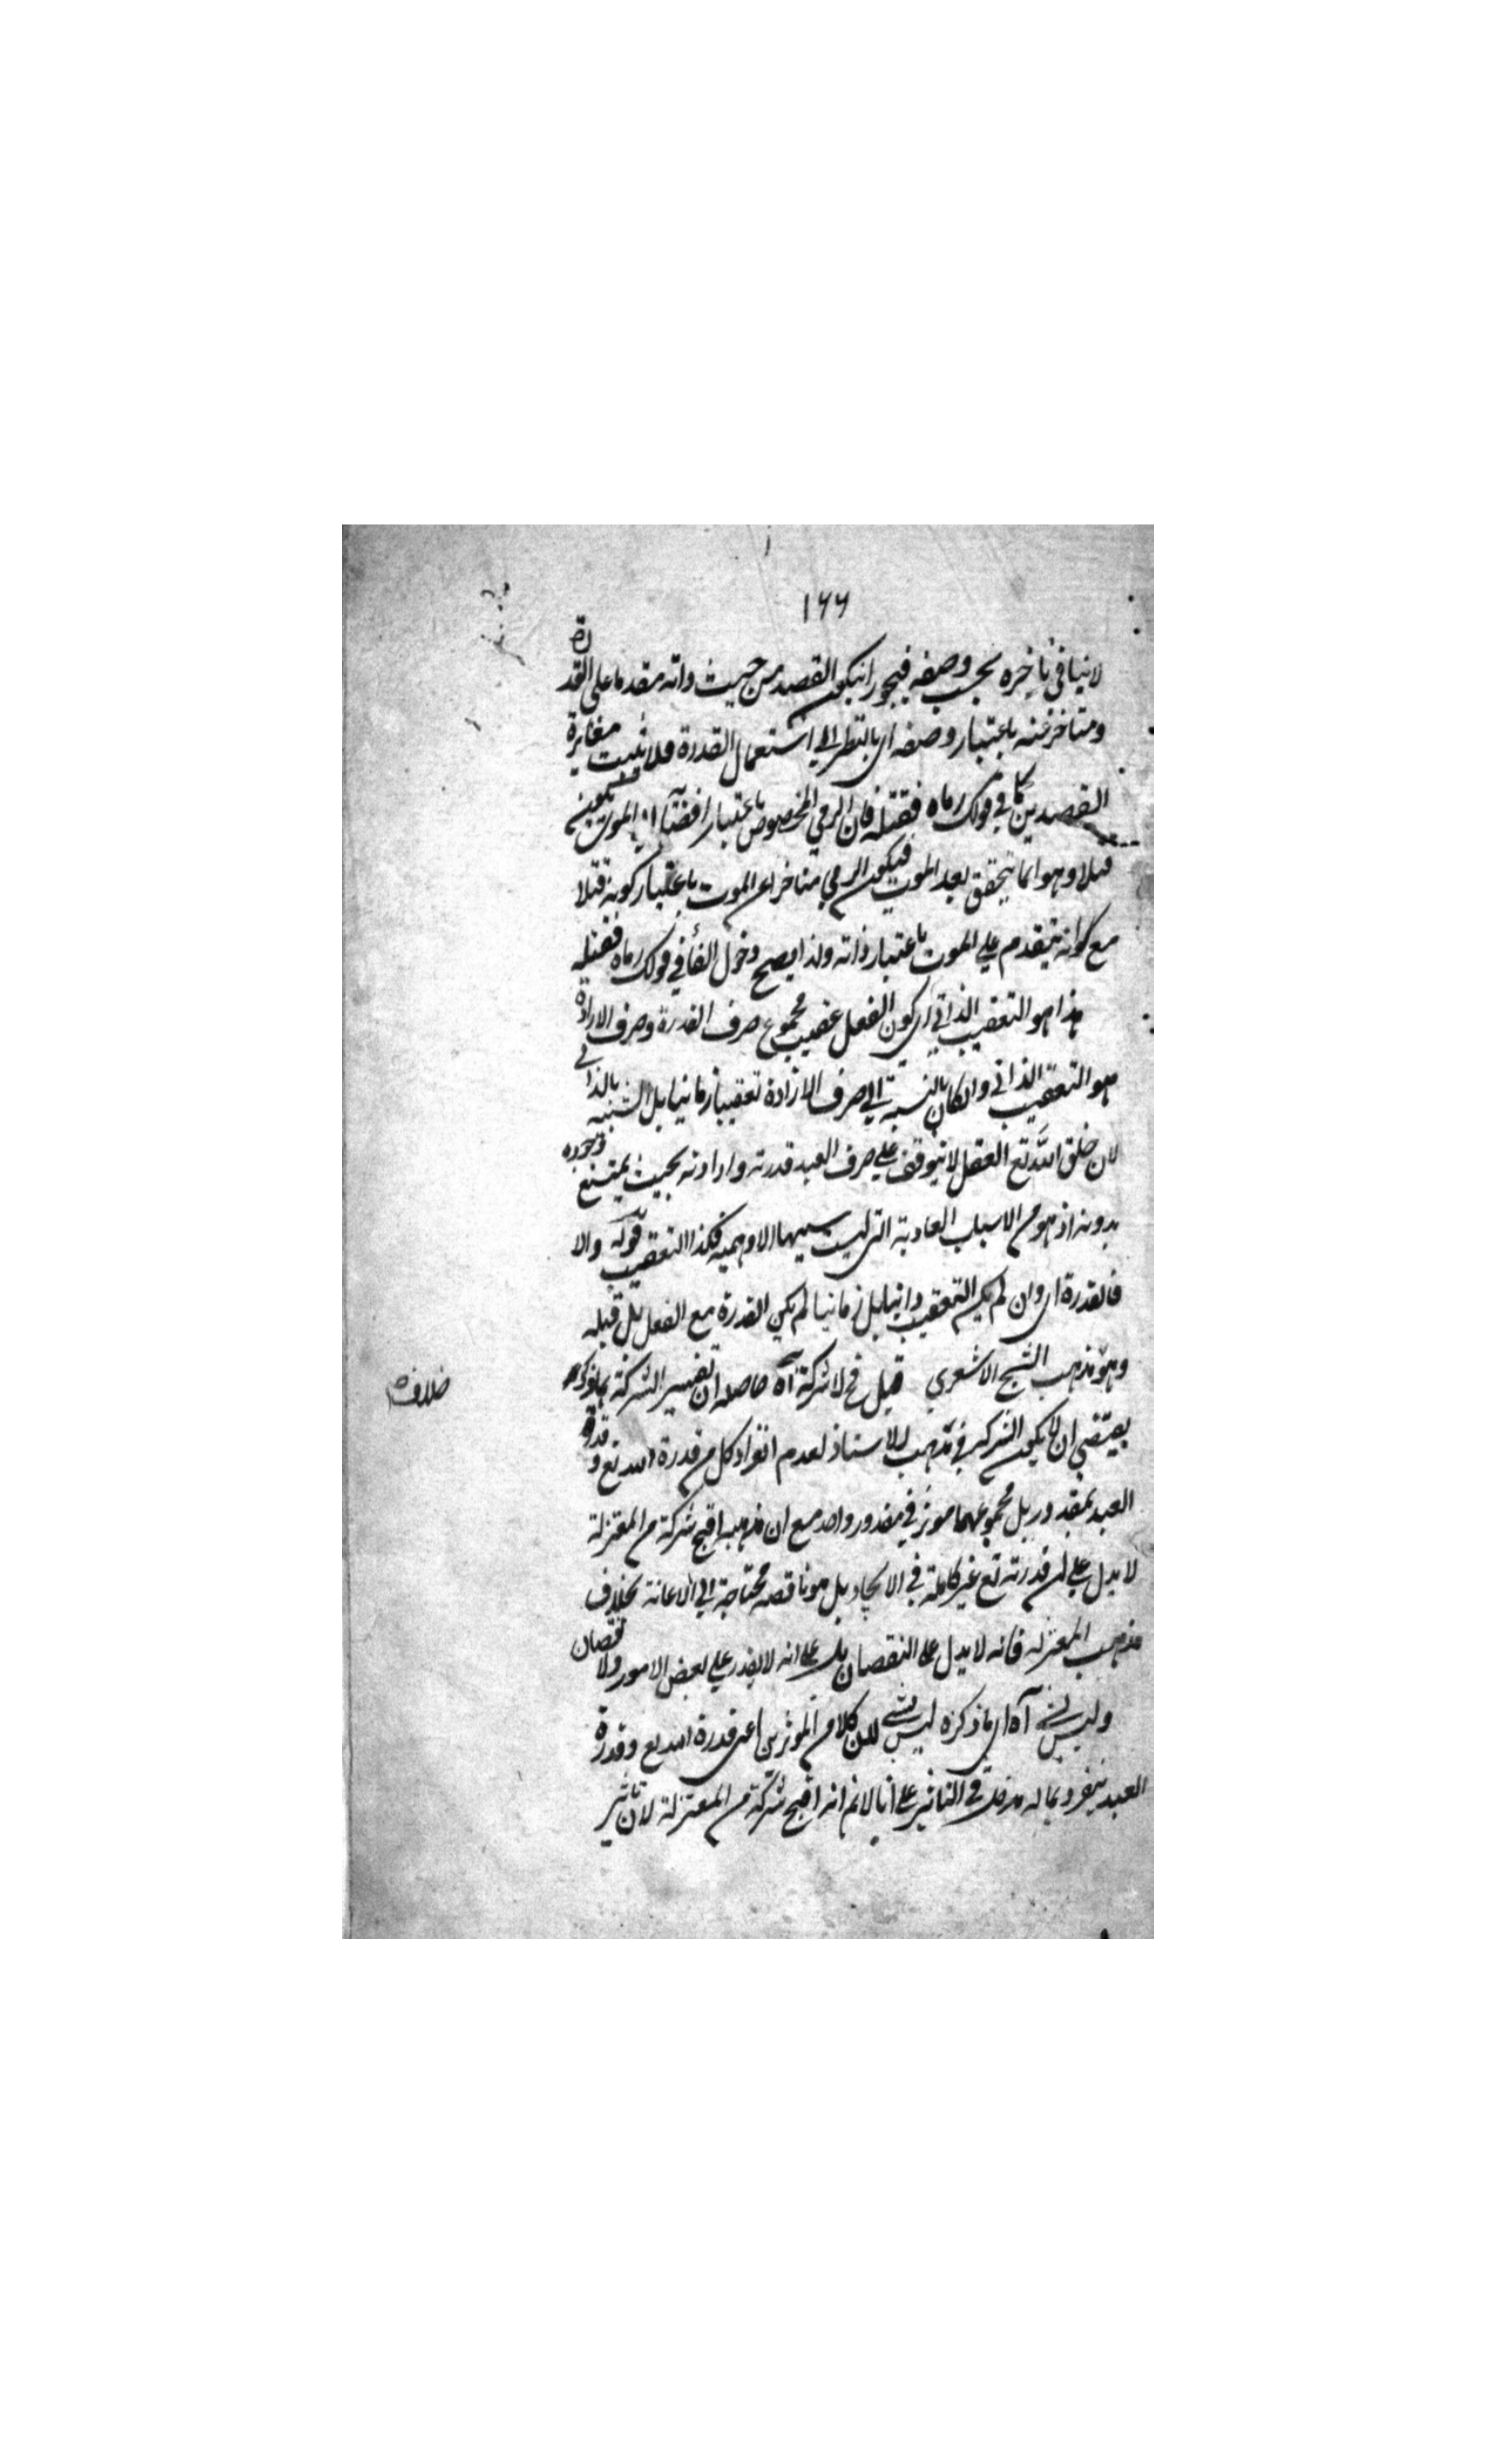 ١٦٦
لا ينافي تاخيره بحسب وصفه فيجوز ان يكون القصد من حيث ذاته مقدما على القدرة
ومتاخرا عنه باعتبار وصفه اى بالنظر الى استعمال القدرة فلا يثبت مغايرة
القصدين كما في قولك رماه فقتله فان الرمي المخصوص باعتبار افضائه الى الموت يكون
قتلا وهو انما يتحقق بعد الموت فيكون الرمي متاخرا عن الموت باعتبار كونه قتلا
مع كونه يتقدم علي الموت باعتبار ذاته ولذا يصح دخول الفاء في قولك رماه فقتله
هذا هو التعقيب الذاتي اى كون الفعل عقيب مجموع صرف القدرة وصرف الارادة
هو التعقيب الذاتي وان كان بالنسبة الي صرف الارادة تعقيبا زمانيا بل الشبيه بالذاتي
لان خلق الله تع الفعل لا يتوقف علي صرف العبد قدرته وارادته بحيث يمتنع وجوده
بدونه اذ هو من الاسباب العادية التي ليست سببيها الا وهمية فكذا التعقيب قوله والا
فالقدرة اى وان لم يكن التعقيب ذاتيا بل زمانيا لم يكن القدرة مع الفعل بل قبله
وهو مذهب الشيخ الاشعري قيل فح لا شركة آه حاصله ان تفسير الشركة بما ذكره
خلاف
يقتضي ان لا يكون الشركة في مذهب الاستاذ لعدم انفراد كل من قدرة الله تع وقدرة
العبد بمقدور بل مجموعهما موثر في مقدور واحد مع ان مذهبه اقبح شركة من المعتزلة
لا يدل علي ان قدرته تع غير كاملة في الايجاد بل هو ناقصة محتاجة الي الاعانة بخلاف
مذهب المعتزلة فانه لا يدل على النقصان بل على انه لا يقدر علي بعض الامور ولا نقصان
وليس بشيء آه اى ما ذكره ليس بشيء لان كلا من الموثرين اعنى قدرة الله تع وقدرة
العبد ينفرد بما له مدخل في التاثير على انا لا نم انه اقبح شركة من المعتزلة لان تاثير